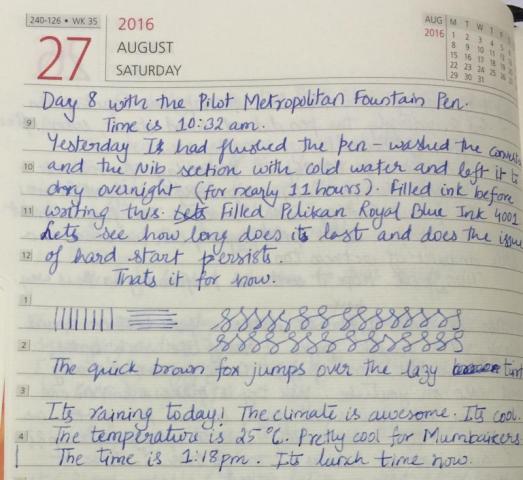 240-126 • WK 35
27
2016
AUGUST
SATURDAY
AUG
2016
M T W T F
1 2 3 4 5
8 9 10 11
15 16 17 18
22 23 24 25
29 30 31
Day 8 with the Pilot Metropolitan Fountain Pen.
9 Time is 10:32 am.
Yesterday I had flushed the pen – washed the
10 and the Nib section with cold water and left it to
dry overnight (for nearly 11 hours). Filled ink before
11 writing this. Lets Filled Pelikan Royal Blue Ink 4001
Lets see how long does its last and does the issue
12 of hard start persists.
Thats it for now.
1
2
The quick brown fox jumps over the lazy
3
Its raining today! The climate is awesome. Its cool.
4 The temperature is 25°C. Pretty cool for Mumbaikers
The time is 1:18pm. Its lunch time now.